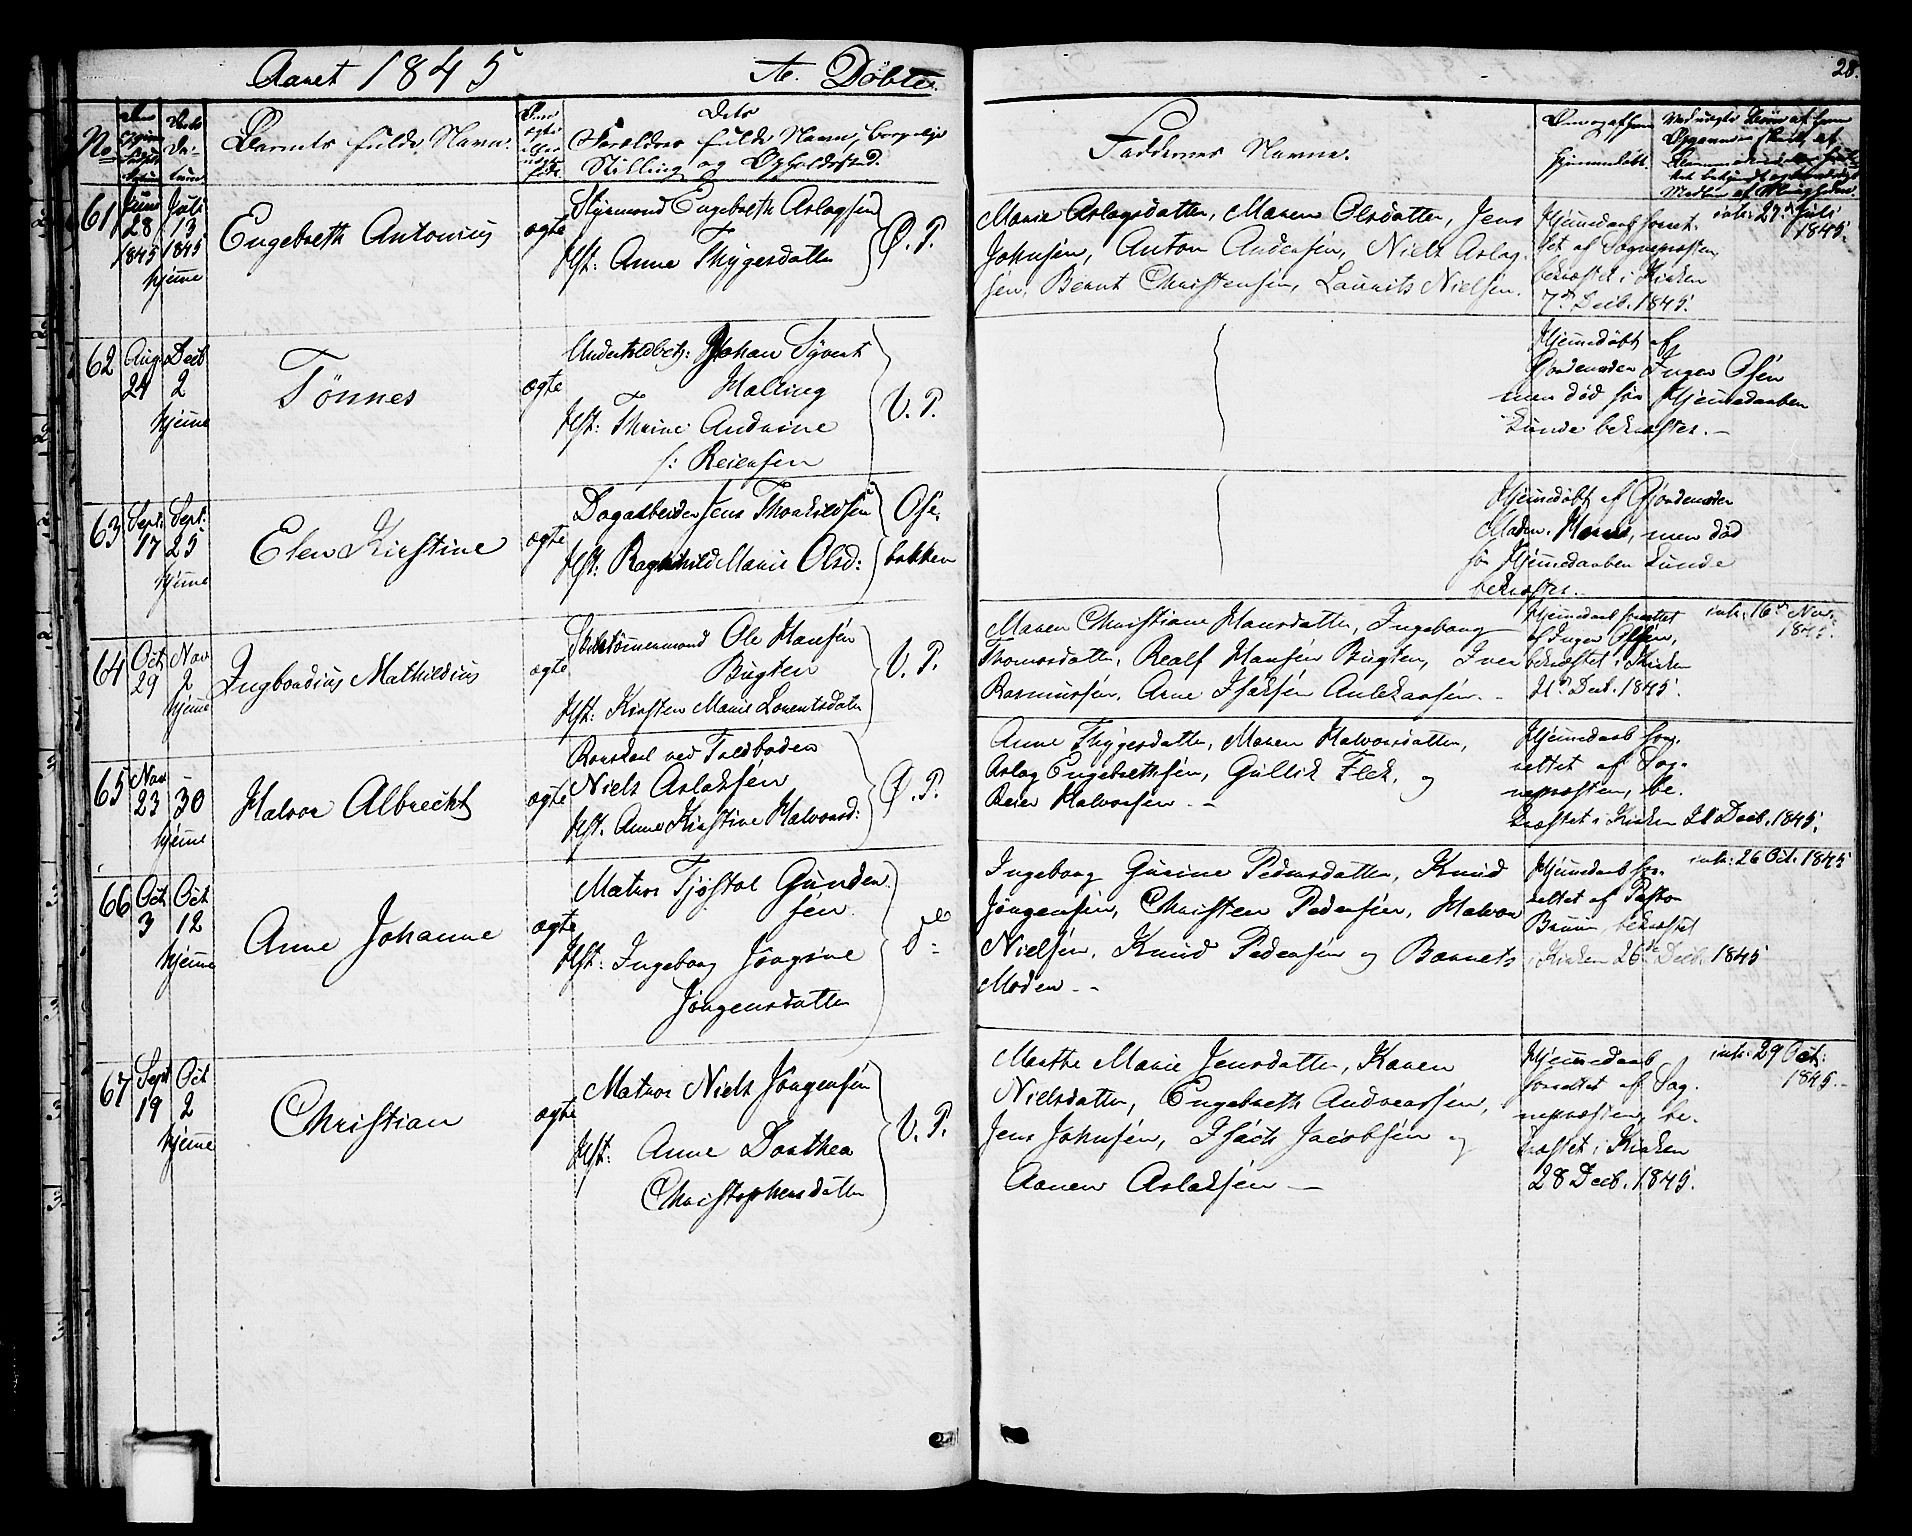 Aaret 1845
A. Døbte.
28.
No
Barnets fulde Navn.
Dets
Forældres fulde Navn, borgerlige
Stilling og Opholdssted.
Faddernes Navne.
61 Juni 28 1845 Juli 13 1845 hjemme
Engebreth Antonius
ægte
Styrmand Engebreth Aslagsen
Hst: Anne Thygesdatter
Ø. P.
Marie Aslagsdatter, Maren Olsdatter, Jens
Johnsen, Anton Andersen, Niels Aslag-
sen, Bernt Christensen, Laurits Nielsen.
Hjemmedaab forret-
tet af Sognepræsten,
bekræftet i Kirken
7de Decb. 1845.
intr: 27d Juli
1845.
62 Aug. 24 Decb 2 hjemme
Tønnes
ægte
Undertoldbetj: Johan Syvert
Halling
Hst: Thrine Andrine
f: Reiersen
V. P.
Hjemmedøbt af
Jordemoder Inger Olsen
men død før Hjemmedaaben
kunde bekræftes. -
63 Sept. 17 Sept: 25 hjemme
Elen Kirstine
ægte
Dagarbeider Jens Thorkildsen
Hst: Ragnhild Marie Olsd:
Ose-
bakken
Hjemmedøbt af Gjordemoder
Madm. Horne, men død
før Hjemmedaaben kunde
bekræftes. -
64 Oct. 29 Nov 2 hjemme
Ingbordius Mathildius
ægte
Skibstømmermand Ole Hansen
Bugten
Hst: Kirsten Marie Lorentsdatr
V. P.
Maren Christiane Hansdatter, Ingeborg
Thomasdatter, Realf Hansen Bugten, Iver
Rasmussen, Arne Isaksen Aulekarsen. -
Hjemmedaab forrettet
af Inger Olsen,
bekræftet i Kirken
21d Decb. 1845.
intr: 16d Nov:
1845.
65 Nov 23 30 hjemme
Halvor Albrecht
ægte
Niels Aslaksén
Hst. Anne Kirstine Halvorsd:
Ø. P.
Anne Thygesdatter, Maren Halvorsdatter,
Aslag Engebrethsen, Gullik Flek, og
Reier Halvorsen. -
Hjemmedaab for-
rettet af Sog-
nepræsten, be-
kræftet i Kirken 21 Decb. 1845.
66 Oct. 3 Oct 12 hjemme
Anne Johanne
ægte
Matros Tjøstol Gunder-
sen
Hst: Ingeborg Jørgine
Jørgensdatter
do
Ingeborg Gurine Pedersdatter, Knud
Jørgensen, Christen Pedersen, Halvor
Nielsén, Knud Pedersen og Barnets
Moder. -
Hjemmedaab for-
rettet af Pastor
Bruun, bekræftet
i Kirken 26de Decb. 1845
intr: 26 Oct. 1845
67 Sept 19 Oct 2 hjemme
Christian
ægte
Matros Niels Jörgensén
Hst: Anne Dorthea
Christophersdatter
V. P.
Marthe Marie Jensdatter, Karen
Nielsdatter, Engebreth Andreassén,
Jens Johnsén, Isach Jacobsén og
Aanen Aslaksén -
Hjemmedaab
forrettet af Sog-
nepræsten, be-
kræftet i Kirken
28 Decb. 1845.
intr: 29 Oct:
1845. -